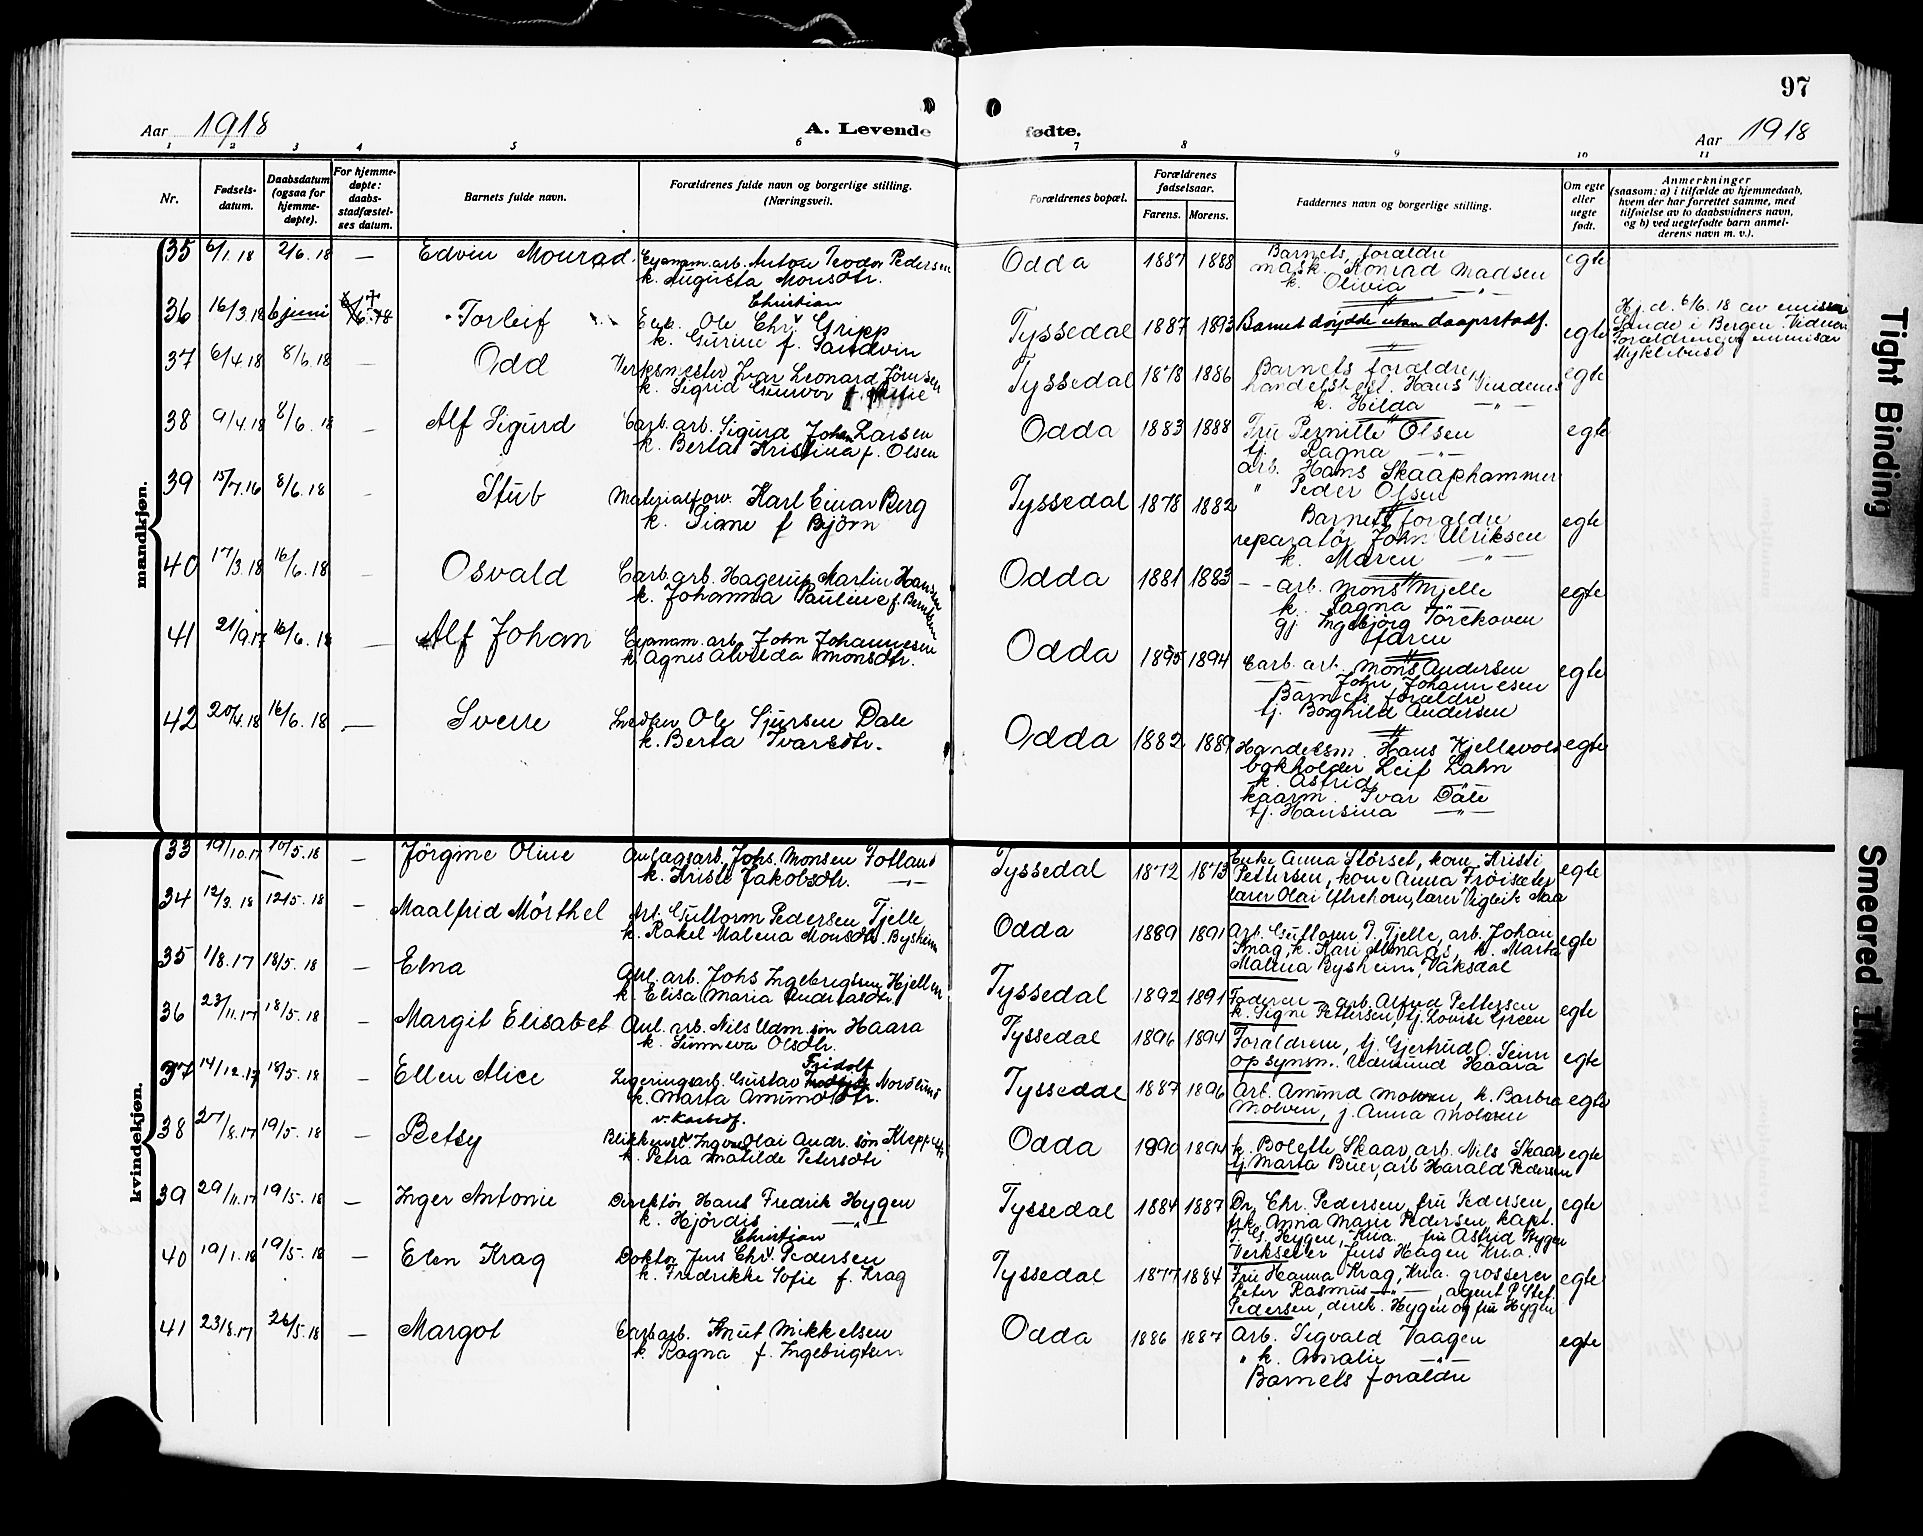 97
Aar 1918
A. Levende fødte.
Aar 1918
1 2 3 4 5 6 7 8 9 10 11
Nr.
Fødsels-
datum.
Daabsdatum
(ogsaa for
hjemme-
døpte).
For hjemme-
døpte:
daabs-
stadfæstel-
ses datum.
Barnets fulde navn.
Forældrenes fulde navn og borgerlige stilling.
(Næringsvei).
Forældrenes bopæl.
Forældrenes
fødselsaar.
Farens. Morens.
Faddernes navn og borgerlige stilling.
Om egte
eller
uegte
født.
Anmerkninger
(saasom: a) i tilfælde av hjemmedaab,
hvem der har forrettet samme, med
tilføielse av to daabsvidners navn,
og b) ved uegtefødte barn anmel-
derens navn m. v.).
mandkjøn.
35 6/1.18 2/6.18 — Edvin Monrad Cyanam.arb. Anton Teodor Pedersen Odda 1887 1888 Barnets foraldre egte
k. Augusta Monsdtr.
mask. Konrad Madsen
k. Olivia — " —
36 16/3.18 6 juni Torleif Ole Chr. Gripp Tyssedal 1887 1893 Barnet døydde utan daapsstadf. egte
Christian
k. Gurine f. Sandvin
Hj.d. 6/6.18 av emissær
Sande i Bergen. Vidner:
Foraldrene og emissær
Myklebust
37 6/4.18 8/6.18 — Odd Verksmester Ivar Leonard Jönsen Tyssedal 1878 1886 Barnets foraldre, egte
k. Sigrid Gunvor f.
handelsbest. Hans Vindenes
k. Hilda — " —
38 9/4.18 8/6.18 — Alf Sigurd Carb. arb. Sigurd Johan Larsen Odda 1883 1888 Fru Pernille Olsen egte
k. Berta Kristina f. Olsen
tj. Ragna — " —
arb. Hans Skaaphammer
" Peder Olsen
39 15/7.16 8/6.18 — Stub Materialforv. Karl Einar Berg Tyssedal 1878 1882 Barnets foraldre egte
k. Signe f Björn
reparatör John Ulriksen
k. Maren — " —
40 17/3.18 16/6.18 — Osvald Carb.arb. Hagerup Martin Hansen Odda 1881 1883 — arb. Mons Mjelle egte
k. Johanna Pauline f. Berntsen
k. Ragna — " —
gj. Ingebjörg Törehoven
faren
41 21/9.17 16/6.18 — Alf Johan Cyanam. arb. John Johannesen Odda 1895 1894 Carb. arb. Mons Andersen egte
k. Agnes Alvilda Monsdtr.
— John Johannesen
Barnets foraldre
tj. Borghild Andersen
42 20/4.18 16/6.18 — Sverre Snedker Ole Sjursen Dale Odda 1882 1889 Handelsm. Hans Kjellevold egte
k. Berta Ivarsdtr.
bokholder Leif Lahn
k. Astrid — " —
kaarm. Ivar Dale
tj. Hansina — " —
kvindekjøn.
33 19/10.17 10/5.18 — Jörgine Oline Anlægsarb. Johs. Monsen Totland Tyssedal 1872 1873 Enke Anna Störset, kone Kristi egte
k. Kristi Jakobsdtr. — " —
Pettersen, kone Anna Fröisæter
lærer Olai Ystrehorn, lærer Vigleik Naa
34 12/3.18 12/5.18 — Maalfrid Mörthel Arb. Guttorm Pedersen Tjelle Odda 1889 1891 Arb. Guttorm P. Tjelle, arb. Johan egte
k. Rakel Malena Monsdtr. Bysheim
Knag, k. Kari Almaas, k. Marta
Malena Bysheim, Vaksdal
35 1/8.17 18/5.18 — Elna Anl. arb. Johs Ingebrigtsen Hjellen Tyssedal 1892 1891 Faderen — arb. Alfred Pettersen egte
k. Elisa Maria Andreasdtr.
k. Signe Pettersen, tj. Lovise Green
36 23/11.17 18/5.18 — Margit Elisabet Anl. arb. Nils Udm. sön Haara Tyssedal 1896 1894 Foraldrene, tj. Gjertrud O. Seim egte
k. Sunneva Olsdtr.
opsynsm. Udmund Haara
37 14/12.17 18/5.18 — Ellen Alice Legeringsarb. Gustav Fridolf Nordlund Tyssedal 1887 1896 Arb. Amund Molven, k. Barbra egte
k. Marta Amundsdtr.
Molven, j. Anna Molven
38 27/8.17 19/5.18 — Betsy Blikkensl. Ingv. Olai Andr. sön Kleppe Odda 1890 1894 k. Bolette Skaar, arb. Nils Skaar egte
v. Karbidf.
k. Petra Matilde Petersdtr.
tj. Marta Buer, arb Harald Pedersen
39 29/11.17 19/5.18 — Inger Antonie Direktör Hans Fredrik Hygen Tyssedal 1884 1887 Dr. Chr. Pedersen, fru Pedersen, egte
k. Hjördis — " —
frk. Anna Marie Pedersen, kapt.
T. G. Hygen, Kria. fru Astrid Hygen
Verkseier Jens Hagen Kria.
40 19/1.18 19/5.18 — Elen Krag Doktor Jens Chr. Pedersen Tyssedal 1877 1884 Fru Hanna Krag, Kria. grosserer egte
Christian
k. Fredrikke Sofie f. Krag
Peter Rasmus — " —, agent P. Stef.
Pedersen, direk. Hygen og fru Hygen
41 23/8.17 26/5.18 — Margot Carb.arb. Knut Mikkelsen Odda 1886 1887 Arb. Sigvald Vaagen egte
k. Ragna f. Ingebrigtsen
" k. Amalie — " —
Barnets foraldre
Tight Binding
Smeared Ink